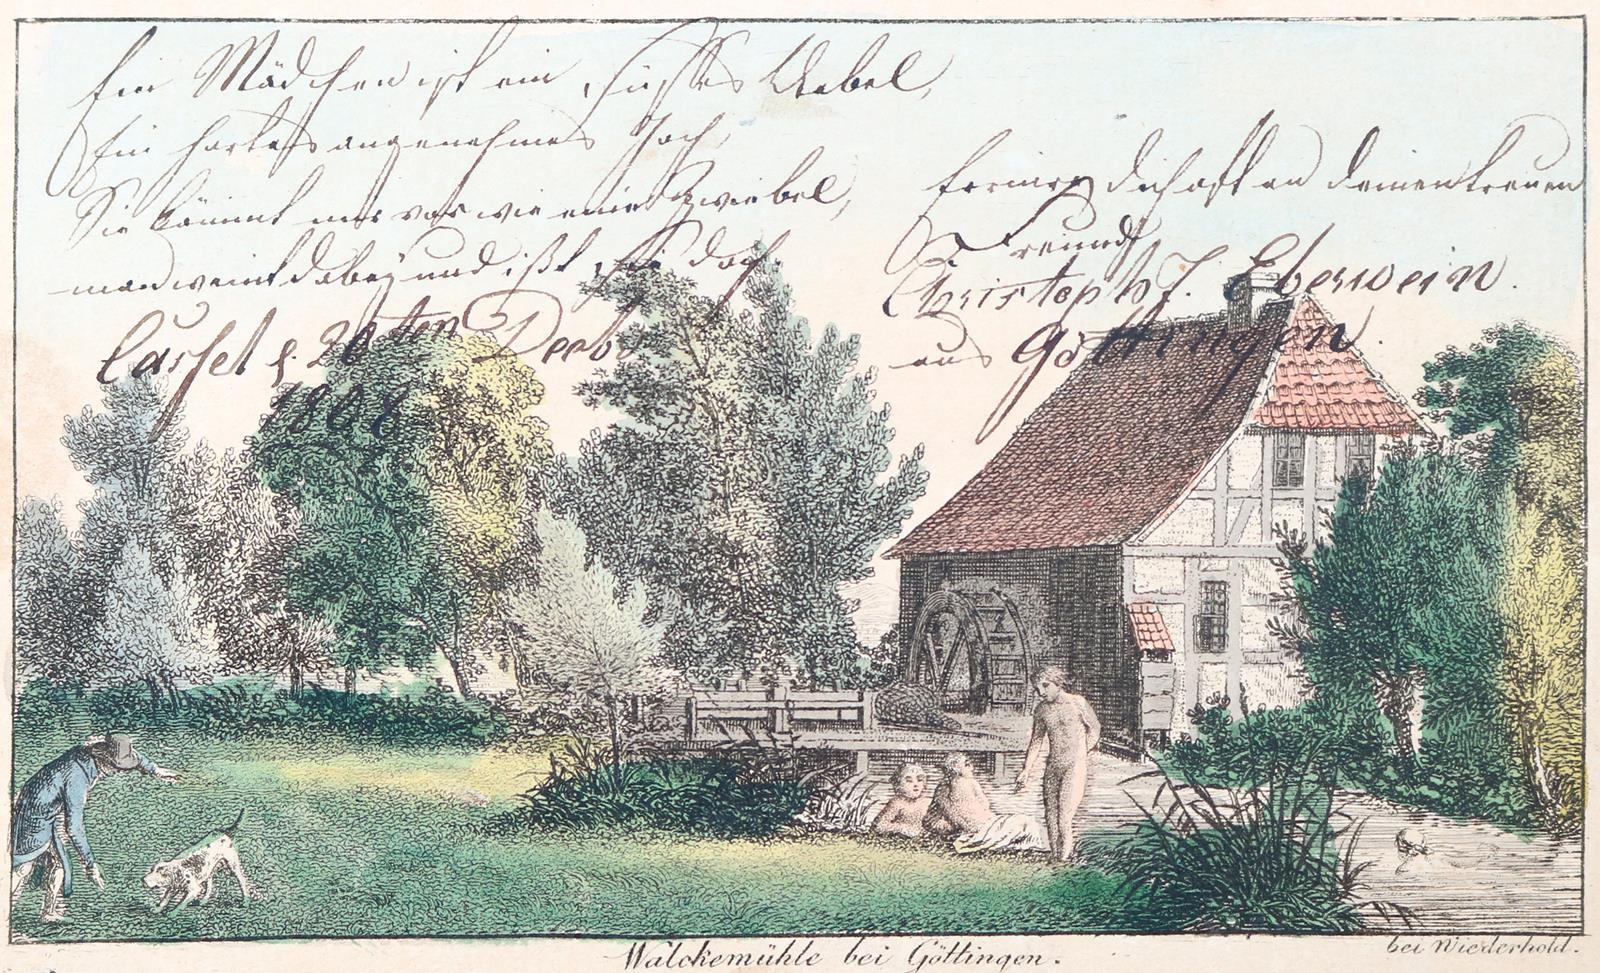 Ein Mädchen ist ein süsses Uebel,
Ein hartes angenehmes Joch,
Sie kömmt mir vor wie eine Zwiebel,
man weint dabey und ißt sie doch.
Cassel d. 20ten Decbr
1808
Erinre dich oft an deinen treuen
Freund
Christoph J. Eberwein.
aus Göttingen.
Walckemühle bei Göttingen.
bei Wiederhold.